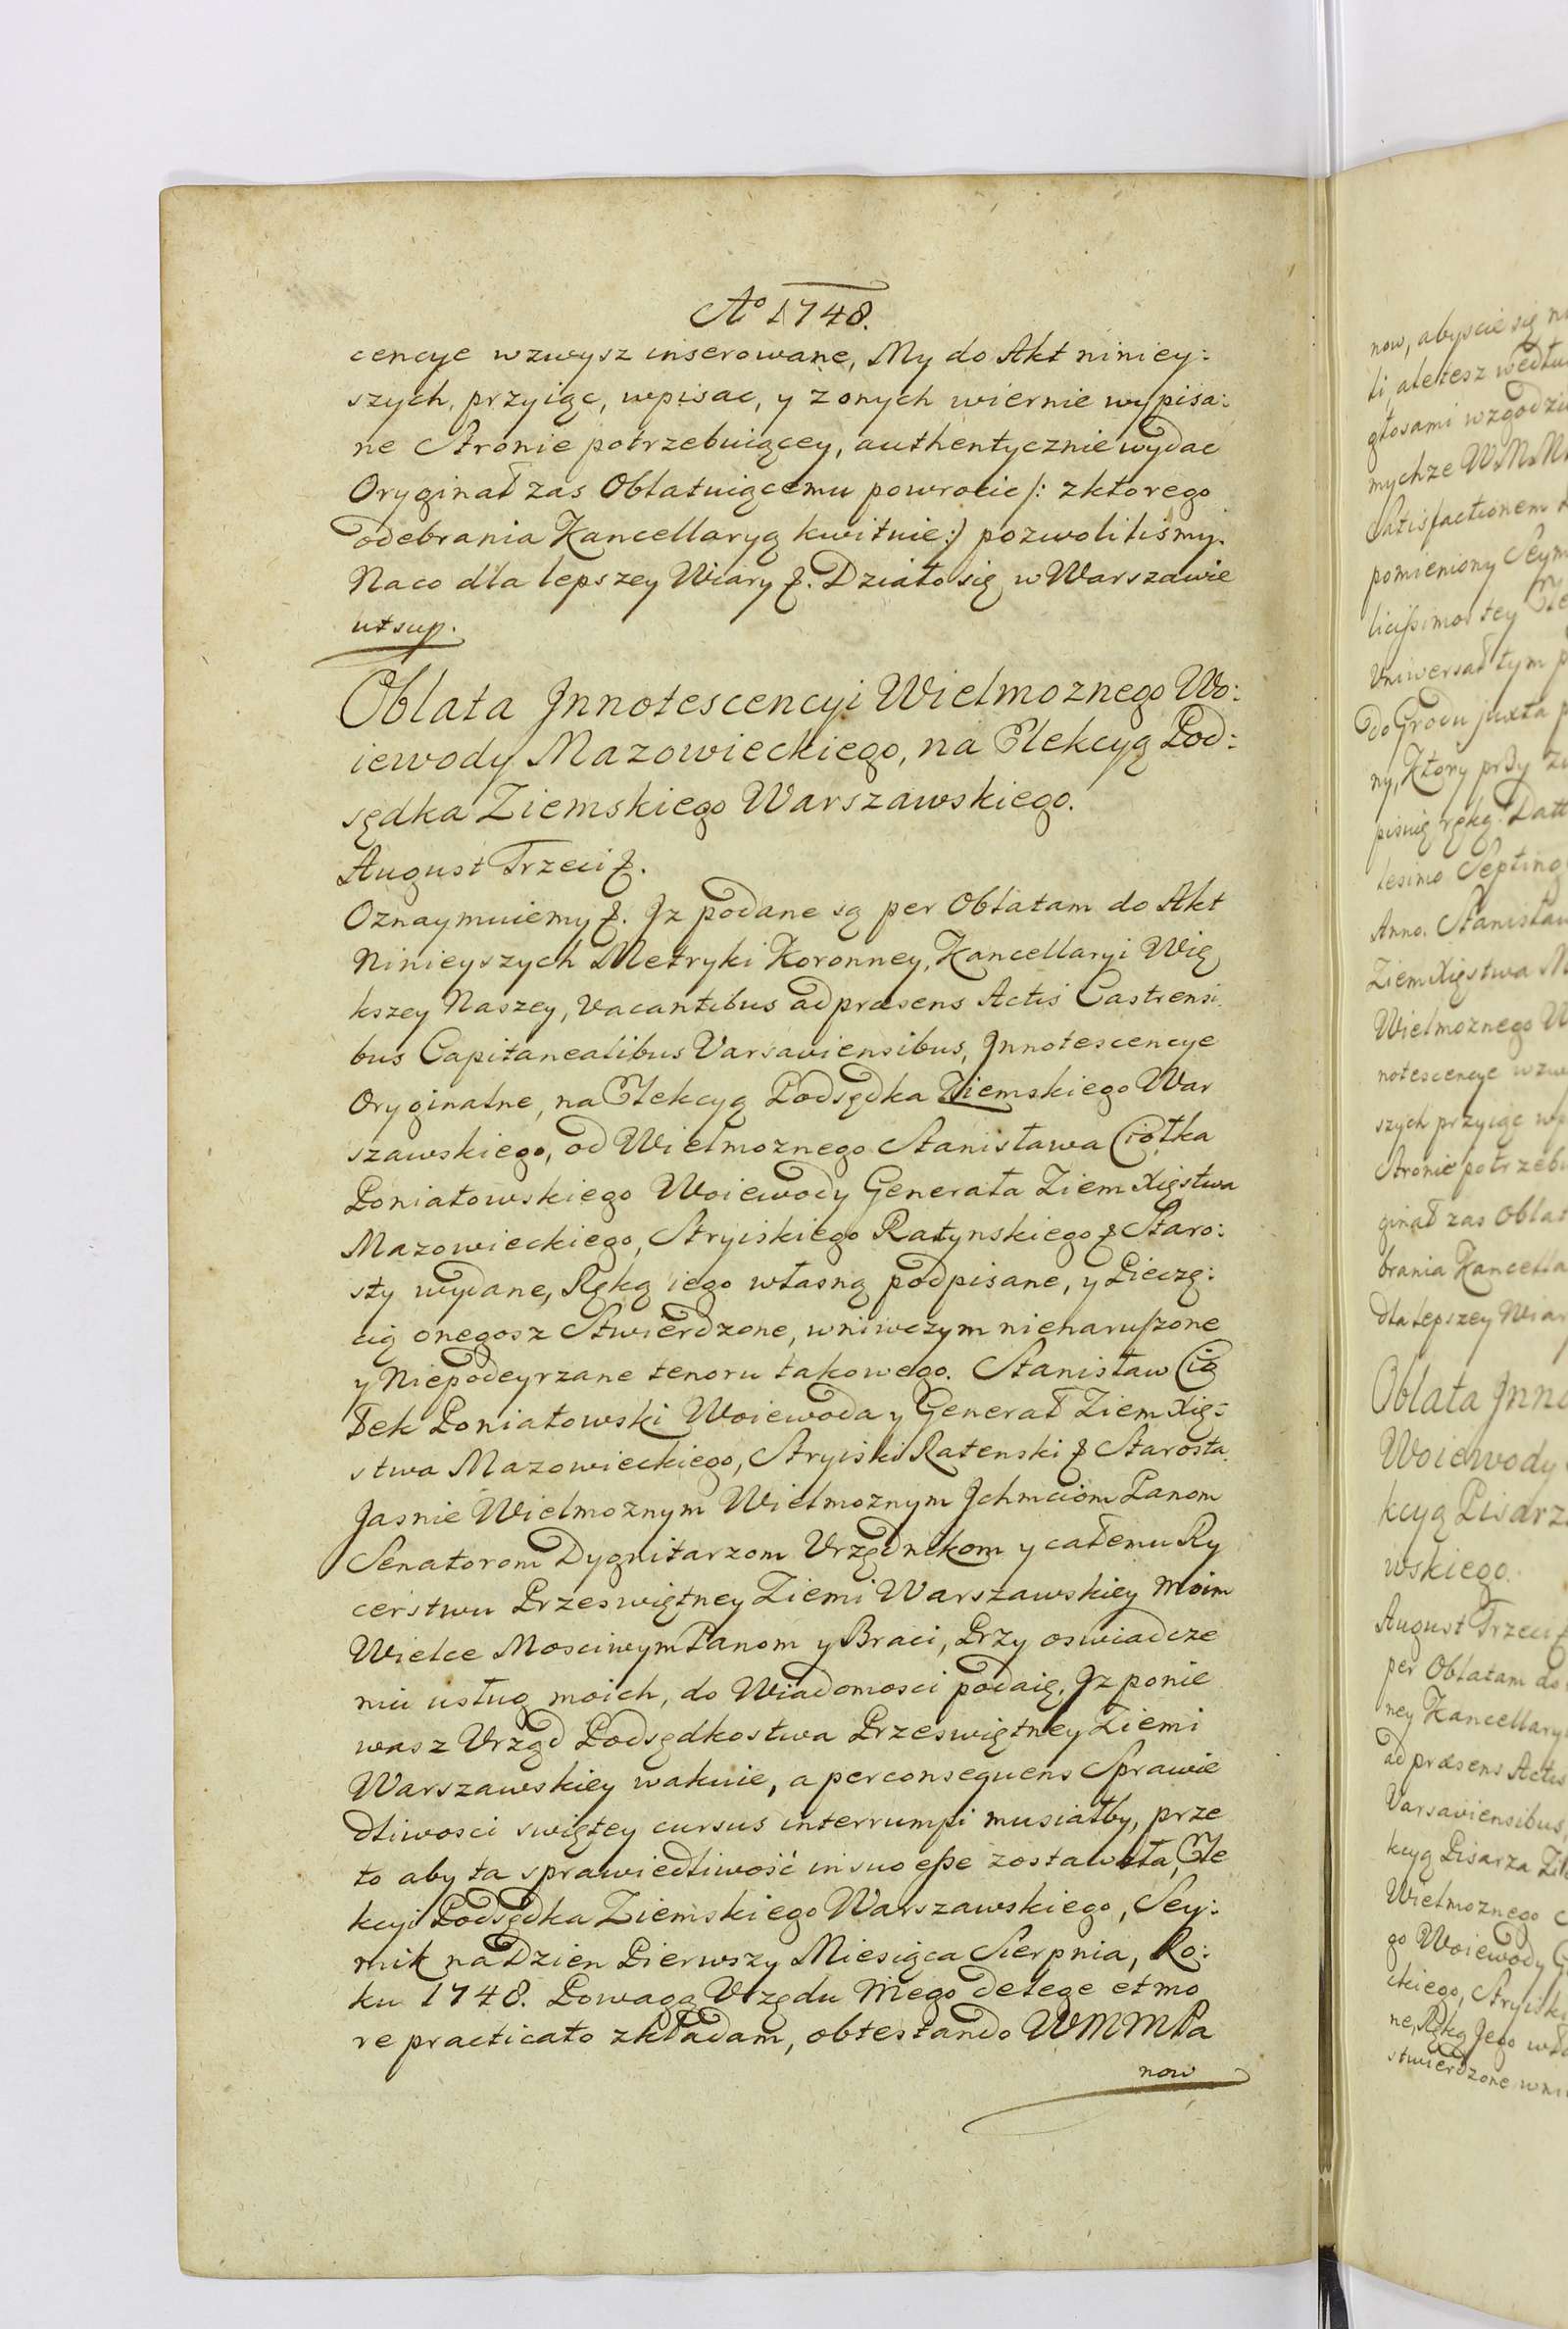 Ao 1748.
cencye wzwysz inserowane, My do Akt niniey:
szych, przyiąc, wpisac, y z onych wiernie wypisa:
ne Stronie potrzebuiącey, authentycznie wydac
Oryginał zas Oblatuiącemu powrocic /: z ktorego
odebrania Kancellaryą kwituie :/ pozwolilismy.
Na co dla lepszey Wiary &. Działo się w Warszawie
ut sup.
Oblata Jnnotescencyi Wielmoznego Wo:
iewody Mazowieckiego, na Elekcyą Pod:
sędka Ziemskiego Warszawskiego.
August Trzeci &.
Oznaymuiemy &. Jz podane są per Oblatam do Akt
Ninieyszych Metryki Koronney, Kancellaryi Wię
kszey Naszey, vacantibus ad præsens Actis Castrensi
bus Capitanealibus Varsaviensibus, Jnnotescencye
Oryginalne, na Elekcyą Podsędka Ziemskiego War
szawskiego, od Wielmoznego Stanisława Ciołka
Poniatowskiego Woiewody Generała Ziem Xięstwa
Mazowieckiego, Stryiskiego Ratynskiego & Staro:
sty wydane, Ręką iego własną podpisane, y Pieczę:
cią onegosz Stwierdzone, wniwczym nienaruszone
y Niepodeyrzane tenoru takowego. Stanisław Cio
łek Poniatowski Woiewoda y Generał Ziem Xię:
stwa Mazowieckiego, Stryiski Ratenski & Starosta.
Jasnie Wielmoznym Wielmoznym Jchmciom Panom
Senatorom Dygnitarzom Vrzędnikom y całemu Ry
cerstwu Przeswiętney Ziemi Warszawskiey Moim
Wielce Mosciwym Panom y Braci, Przy oswiadcze
niu usług moich, do Wiadomosci podaię, Jz ponie
wasz Vrząd Podsędkostwa Przeswiętney Ziemi
Warszawskiey wakuie, a perconsequens Sprawie
dliwosci swiętey cursus interrumpi musiałby, prze
to aby ta sprawiedliwość in suo esse zostawała, Ele
kcyi Podsędka Ziemskiego Warszawskiego, Sey:
mik na Dzien Pierwszy Miesiąca Sierpnia, Ro:
ku 1748. Powagą Vrzędu Mego de lege et mo
re practicato zkładam, obtestando WMMPa
now
now, abyscie się
li, ale tesz wedłu
głosami wzgodzi
mychze WMM
Satisfactionem
pomieniony Seym
licissimos tey Ele
Vniwersał tym
do Grodu juxta
ny, Ktory przy
pisuię ręką. Datt
lesimo Septing
Anno. Stanisław
Ziem Xięstwa M
Wielmoznego W
notescencye wzw
szych przyiąc wp
Stronie potrzebu
ginał zas Oblat
brania Kancella
dla lepszey Wiar
Oblata Jnno
Woiewody
kcyą Pisarz
wskiego.
August Trzeci &
per Oblatam do
ney Kancellary
ad præsens Actis
Varsaviensibus,
kcyą Pisarza Zie
Wielmoznego C
go Woiewody G
ckiego, Stryisk
ne, Ręką Jego wła
stwierdzone wni